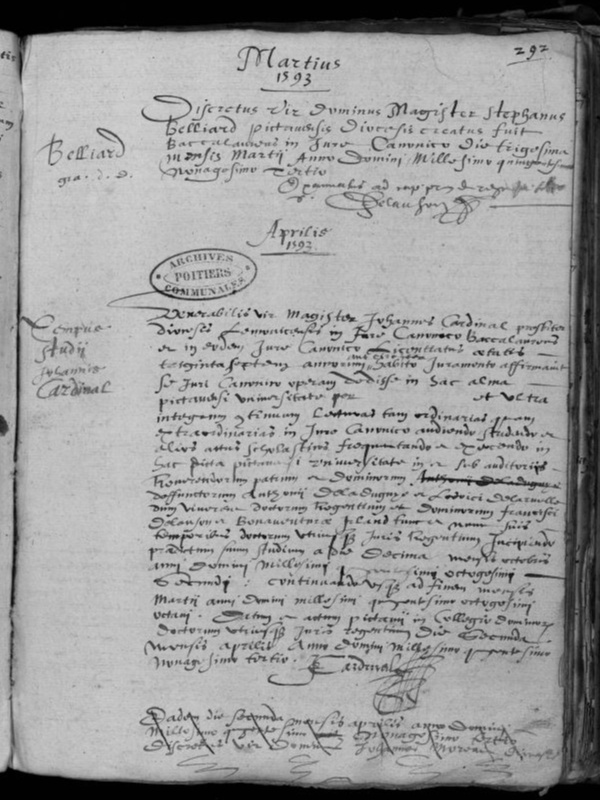 292
Martius
1593
Discretus vir Dominus Magister Stephanus
Belliard pictavensis Diocesis creatus fuit
Baccalaureus in Jure Canonico die trigesima
mensis Martii Anno Domini Millesimo quingentesimo
nonagesimo tertio
Belliard
gra. d. d.
Aprilis
1593
ARCHIVES
POITIERS
COMMUNALES
Tempus
studii
Johannis
Cardinal
Venerabilis vir Magister Johannes Cardinal presbiter
diocesis Lemovicensis in Jure Canonico Baccalaureus
et in eodem Jure Canonico Licentiatus ætatis
triginta septem annorum habito Juramento affirmavit
se Juri Canonico operam dedisse in hac alma
pictavensi universitate per et ultra
integrum lecturas tam ordinarias quam
extraordinarias in Jure Canonico audiendo studendo et
alios actus scholasticos frequentando et exercendo in
hac dicta pictavensi universitate in et sub auditoriis
Reverendorum patrum et dominorum Anthonii Deladuguye
deffunctorum Anthonii Deladuguye et Lodoici Delaruelle
dum viverent doctorum Regentium et dominorum francisci
Delauson et Bonaventuræ Irland tunc et nunc suis
temporibus doctorum utriusque Juris Regentium Incipiendo
prædictum suum studium a die decima mensis octobris
anni domini millesimi octogesimi
secundi continuando usque ad finem mensis
Martii anni domini millesimi quingentesimo octogesimi
octavi Datum et actum pictavii in Collegio dominorum
doctorum utriusque Juris regentium Die Secunda
mensis aprilis Anno Domini Millesimo quingentesimo
nonagesimo tertio. Cardinal
Eadem die secunda mensis aprilis anno domini
Millesimo quingentesimo nonagesimo tertio
discretus vir dominus Johannes Moreau